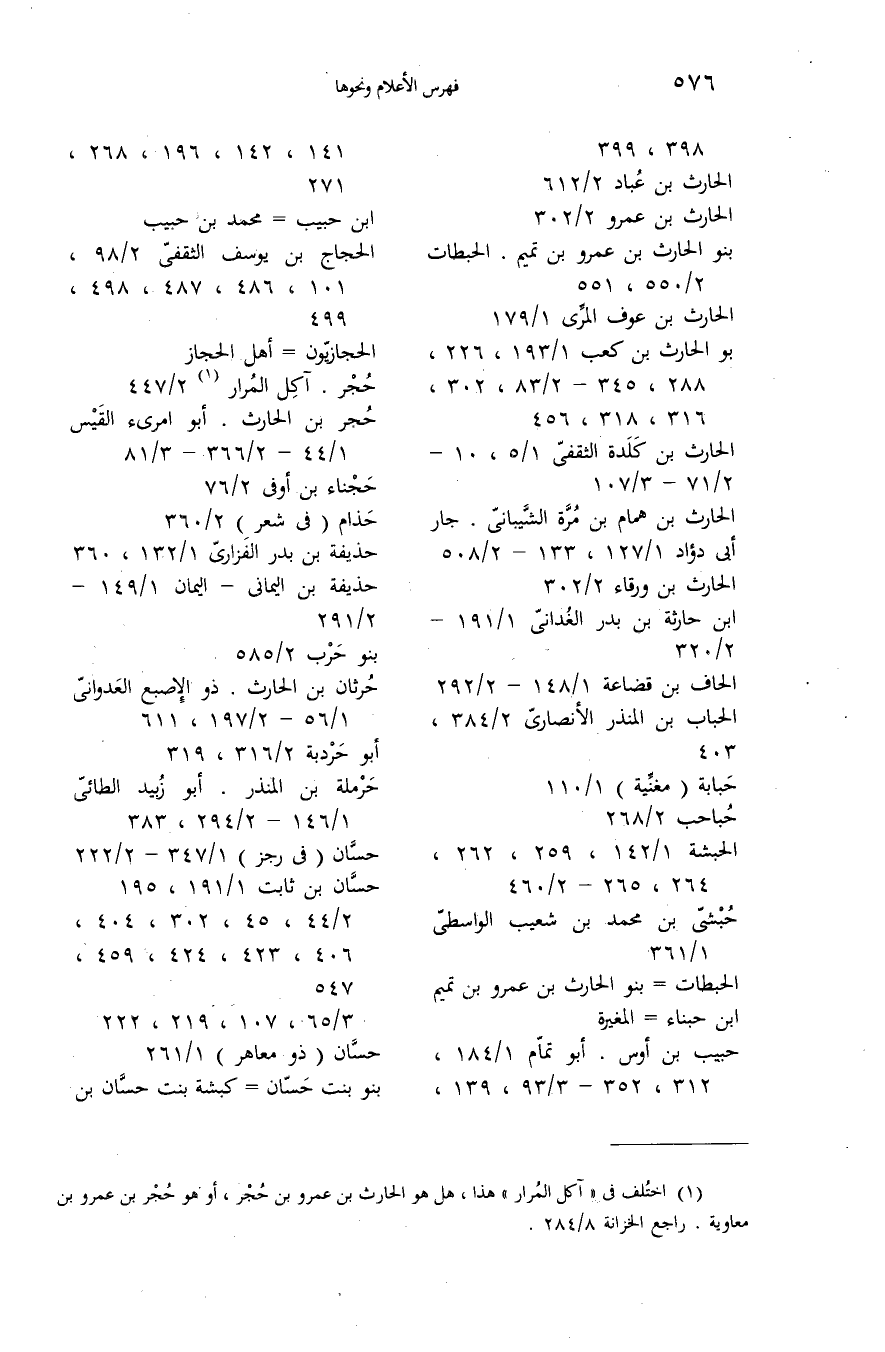 ٥٧٦
فهرس الأعلام ونحوها
٣٩٨ ، ٣٩٩
الحارث بن عُباد ٦١٢/٢
الحارث بن عمرو ٣٠٢/٢
بنو الحارث بن عمرو بن تميم . الحبطات
٥٥٠/٢ ، ٥٥١
الحارث بن عوف المرِّى ١٧٩/١
بو الحارث بن كعب ١٩٣/١ ، ٢٢٦ ،
٢٨٨ ، ٣٤٥ – ٨٣/٢ ، ٣٠٢ ،
٣١٦ ، ٣١٨ ، ٤٥٦
الحارث بن كَلَدة الثقفىّ ٥/١ ، ١٠ –
٧١/٢ – ١٠٧/٣
الحارث بن همام بن مُرَّة الشَّيبانىّ . جار
أبى دؤاد ١٢٧/١ ، ١٣٣ – ٥٠٨/٢
الحارث بن ورقاء ٣٠٢/٢
ابن حارثة بن بدر الغُدانىّ ١٩١/١ –
٣٢٠/٢
الحاف بن قضاعة ١٤٨/١ – ٢٩٢/٢
الحباب بن المنذر الأنصارىّ ٣٨٤/٢ ،
٤٠٣
حَبابة ( مغنِّية ) ١١٠/١
حُباحب ٢٦٨/٢
الحبشة ١٤٢/١ ، ٢٥٩ ، ٢٦٢ ،
٢٦٤ ، ٢٦٥ – ٤٦٠/٢
حُبْشىّ بن محمد بن شعيب الواسطىّ
٣٦١/١
الحبطات = بنو الحارث بن عمرو بن تميم
ابن حبناء = المغيرة
حبيب بن أوس . أبو تمّام ١٨٤/١ ،
٣١٢ ، ٣٥٢ – ٩٣/٣ ، ١٣٩ ،
١٤١ ، ١٤٢ ، ١٩٦ ، ٢٦٨ ،
٢٧١
ابن حبيب = محمد بن حبيب
الحجاج بن يوسف الثقفىّ ٩٨/٢ ،
١٠١ ، ٤٨٦ ، ٤٨٧ ، ٤٩٨ ،
٤٩٩
الحجازيّون = أهل الحجاز
حُجْر . آكِل المُرار (١) ٤٤٧/٢
حُجر بن الحارث . أبو امرىء القَيْس
٤٤/١ – ٣٦٦/٢ – ٨١/٣
حَجْناء بن أوفى ٧٦/٢
حَذام ( فى شعر ) ٣٦٠/٢
حذيفة بن بدر الفَزارىّ ١٣٢/١ ، ٣٦٠
حذيفة بن اليمانى – اليمان ١٤٩/١ –
٢٩١/٢
بنو حَرْب ٥٨٥/٢
حُرثان بن الحارث . ذو الإصبع العَدوانىّ
٥٦/١ – ١٩٧/٢ ، ٦١١
أبو حَرْدبة ٣١٦/٢ ، ٣١٩
حَرْملة بن المنذر . أبو زُبيد الطائىّ
١٤٦/١ – ٢٩٤/٢ ، ٣٨٣
حسَّان ( فى رجز ) ٣٤٧/١ – ٢٢٢/٢
حسَّان بن ثابت ١٩١/١ ، ١٩٥
٤٤/٢ ، ٤٥ ، ٣٠٢ ، ٤٠٤ ،
٤٠٦ ، ٤٢٣ ، ٤٢٤ ، ٤٥٩ ،
٥٤٧
٦٥/٣ ، ١٠٧ ، ٢١٩ ، ٢٢٢
حسَّان ( ذو معاهر ) ٢٦١/١
بنو بنت حَسّان = كبشة بنت حسَّان بن
(١) اختُلف فى « آكل المُرار » هذا ، هل هو الحارث بن عمرو بن حُجْر ، أو هو حُجْر بن عمرو بن
معاوية . راجع الخزانة ٢٨٤/٨ .